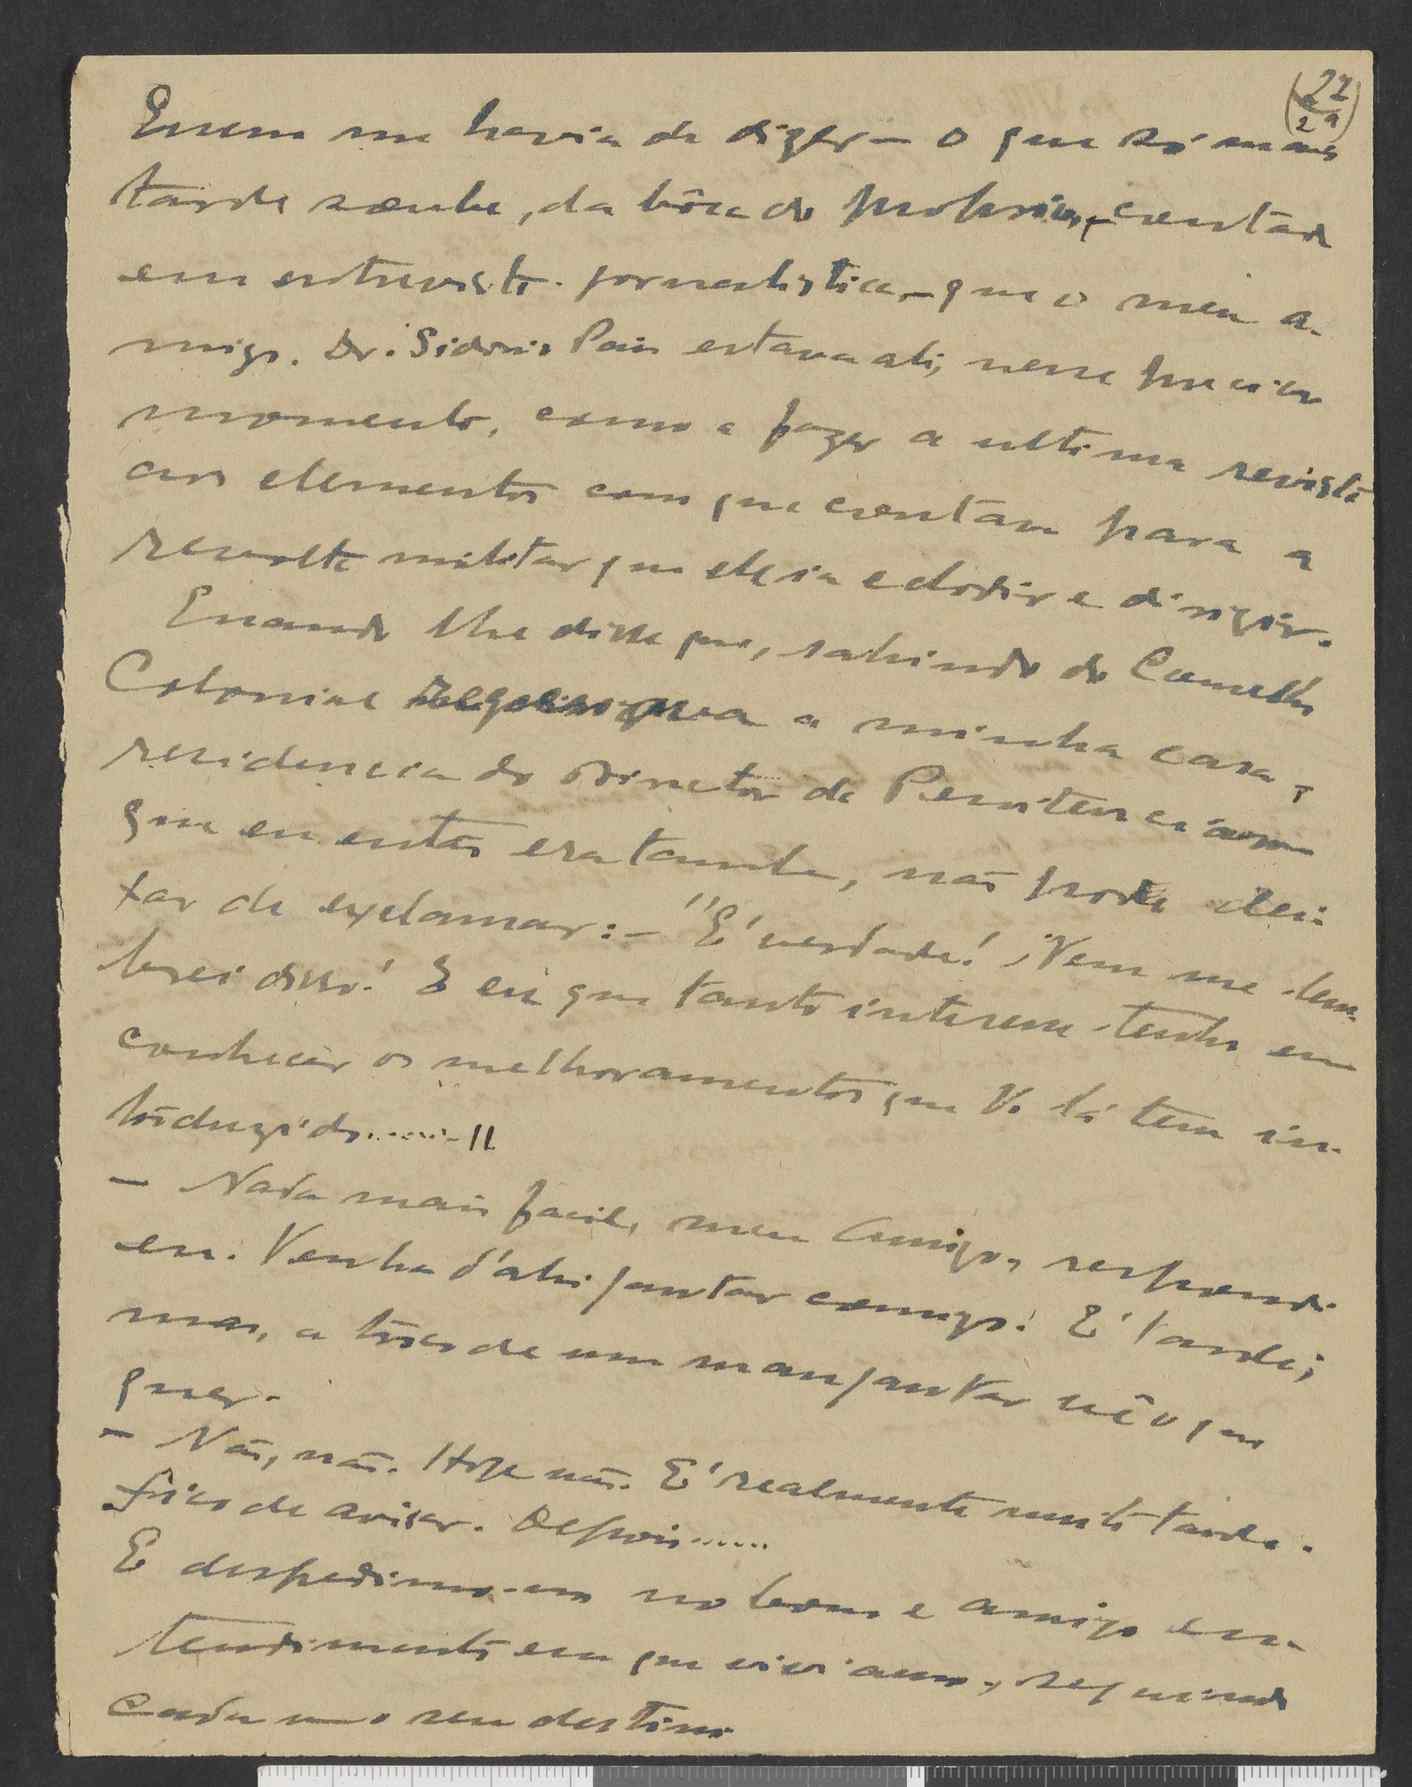 (22
2ª)
Quem me havia de dizer – o que só mais
tarde soube, da bôca do proprio, contada
em entrevista jornalistica, – que o meu a-
migo Dr. Sidonio Pais estava ali, nesse preciso
momento, como a fazer a ultima revista
aos elementos com que contava para a
revolta militar que ele ia eclodir e dirigir.
Quando lhe disse que, sahindo do Conselho
Colonial regressava a minha casa,
residencia do Director da Penitenciaria
que eu então era tambem, não poude dei-
xar de exclamar: – "E' verdade! Nem me lem-
brei disso! E eu que tanto interesse tenho em
conhecer os melhoramentos que V. lá tem in-
troduzido......"
– Nada mais facil, meu Amigo, respondi
eu. Venha d'ahi jantar comigo! E' tarde;
mas, a troco de um mau jantar vê o que
quer.
– Não, não. Hoje não. E' realmente muito tarde.
Fico de avisar. Depois......
E despedimo-nos no bom e amigo en-
tendimento em que viviamos, seguindo
cada um o seu destino